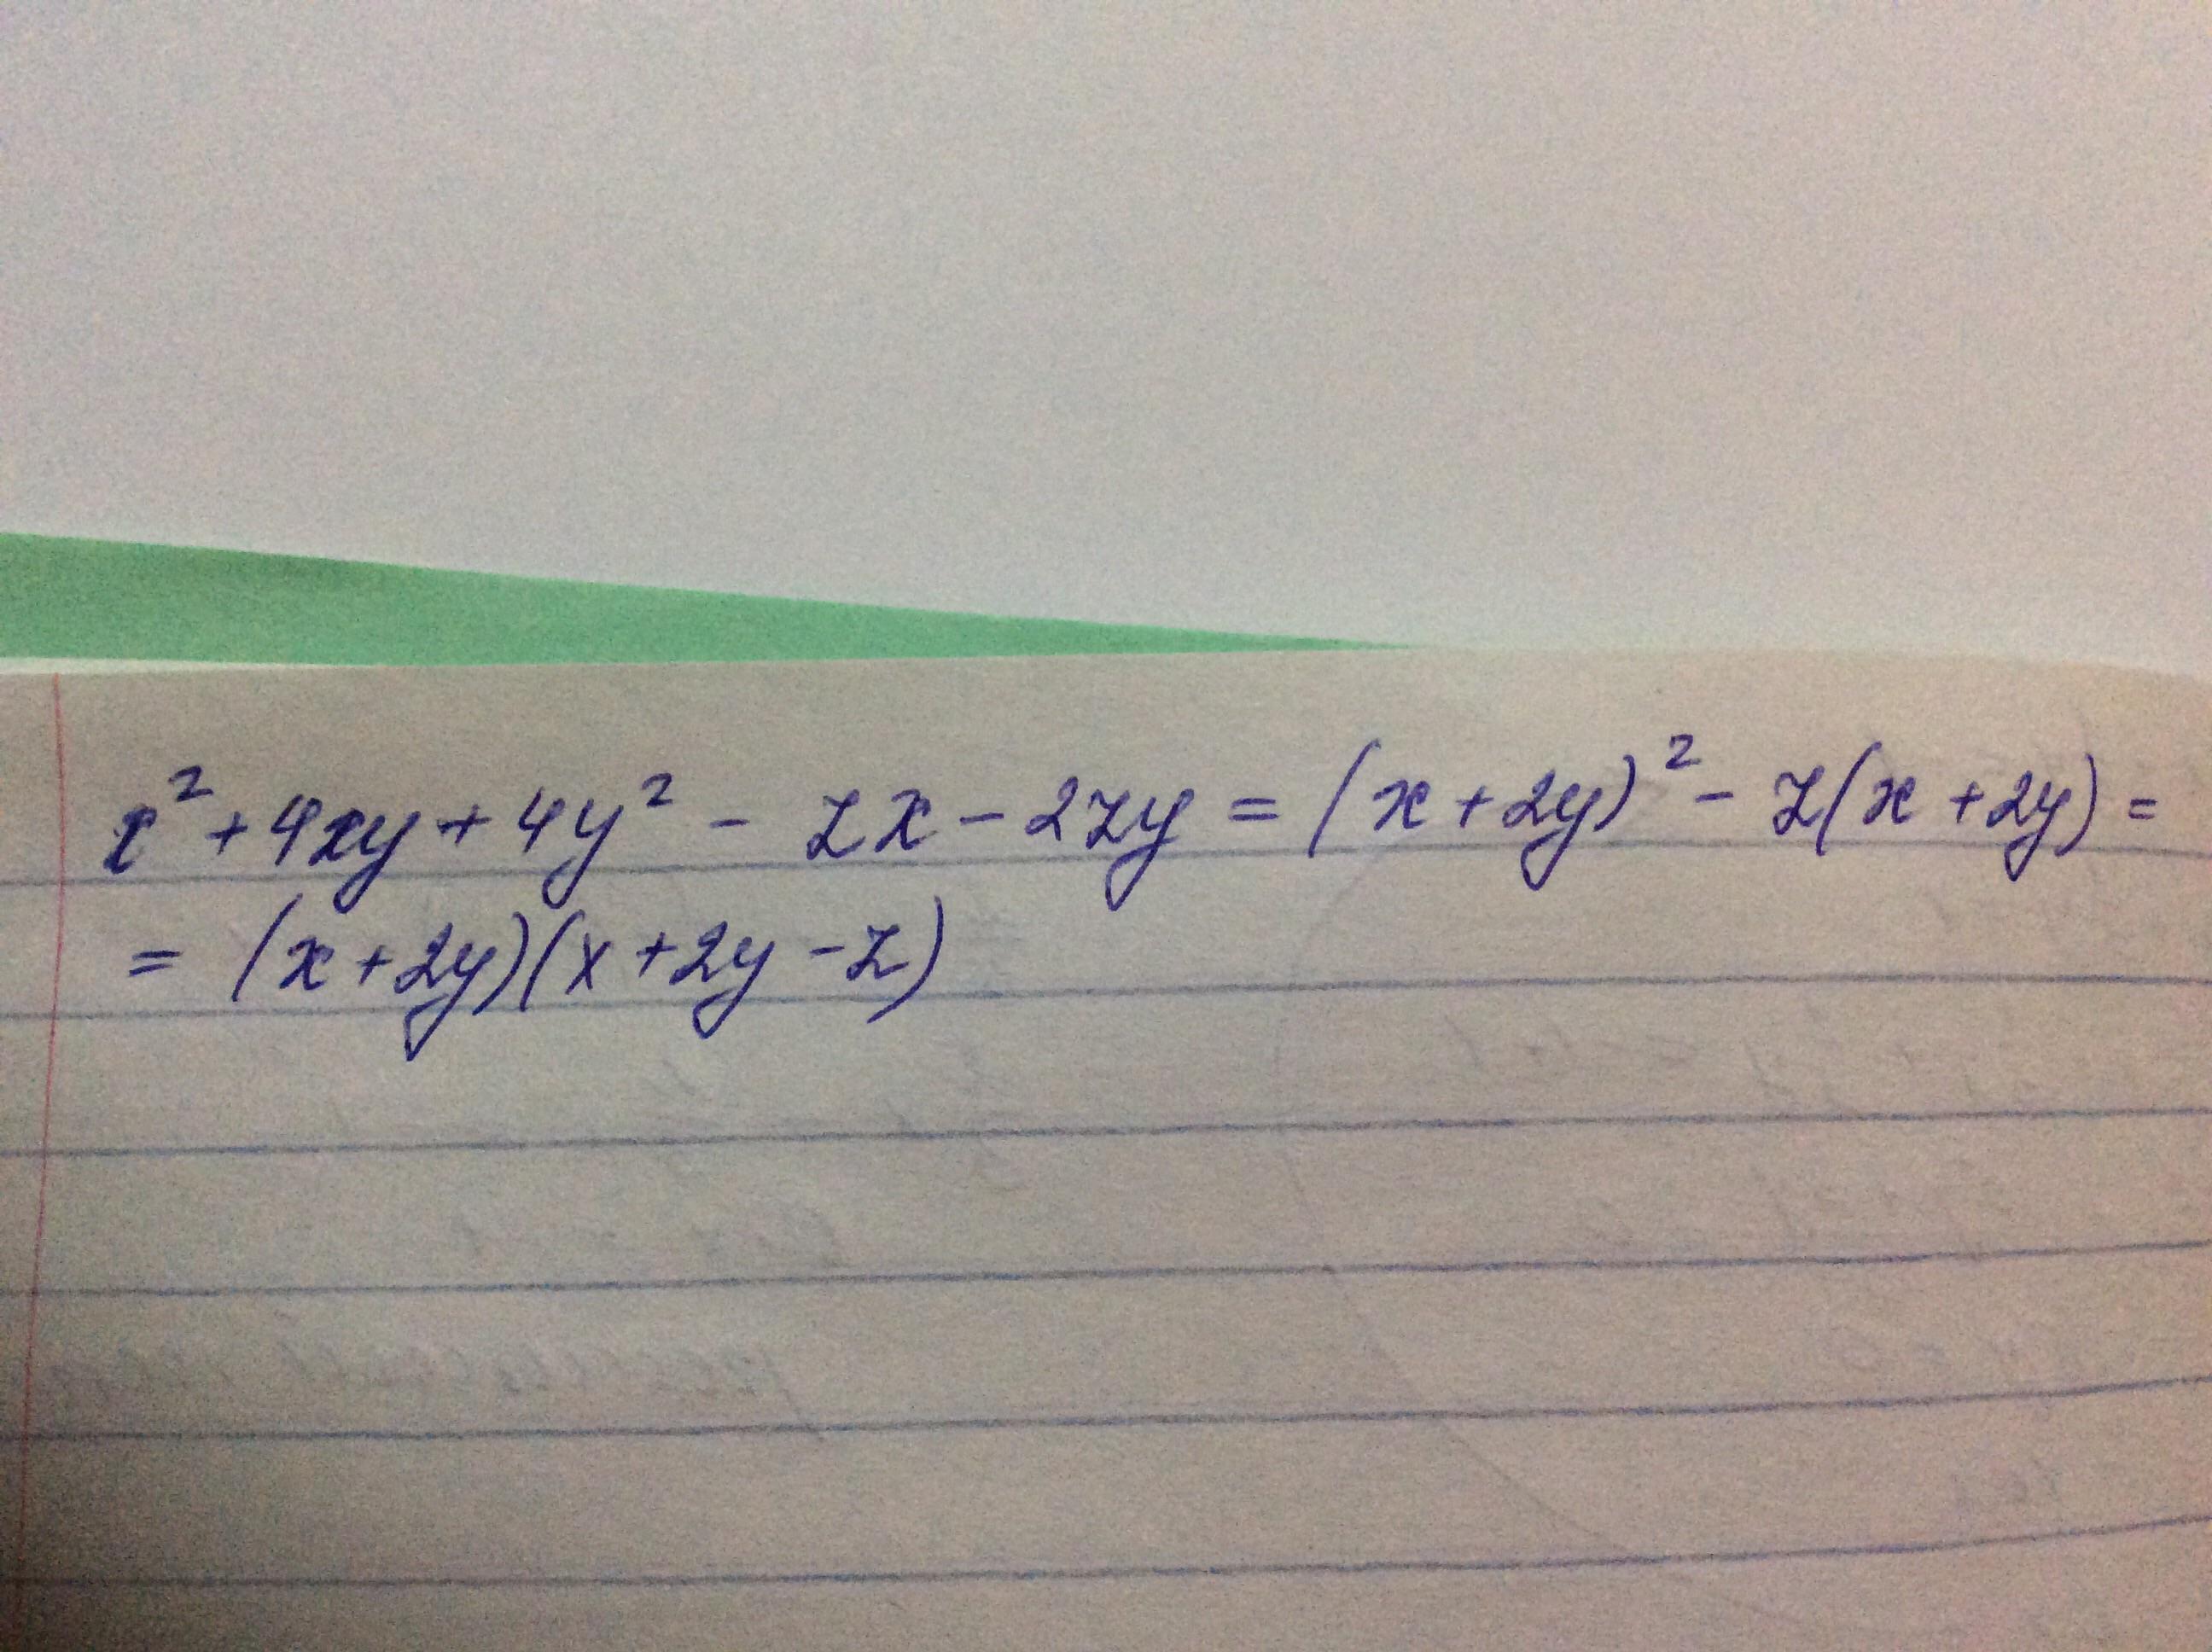 x² + 4xy + 4y² - zx - 2zy = (x + 2y)² - z(x + 2y) =
= (x + 2y)(x + 2y - z)